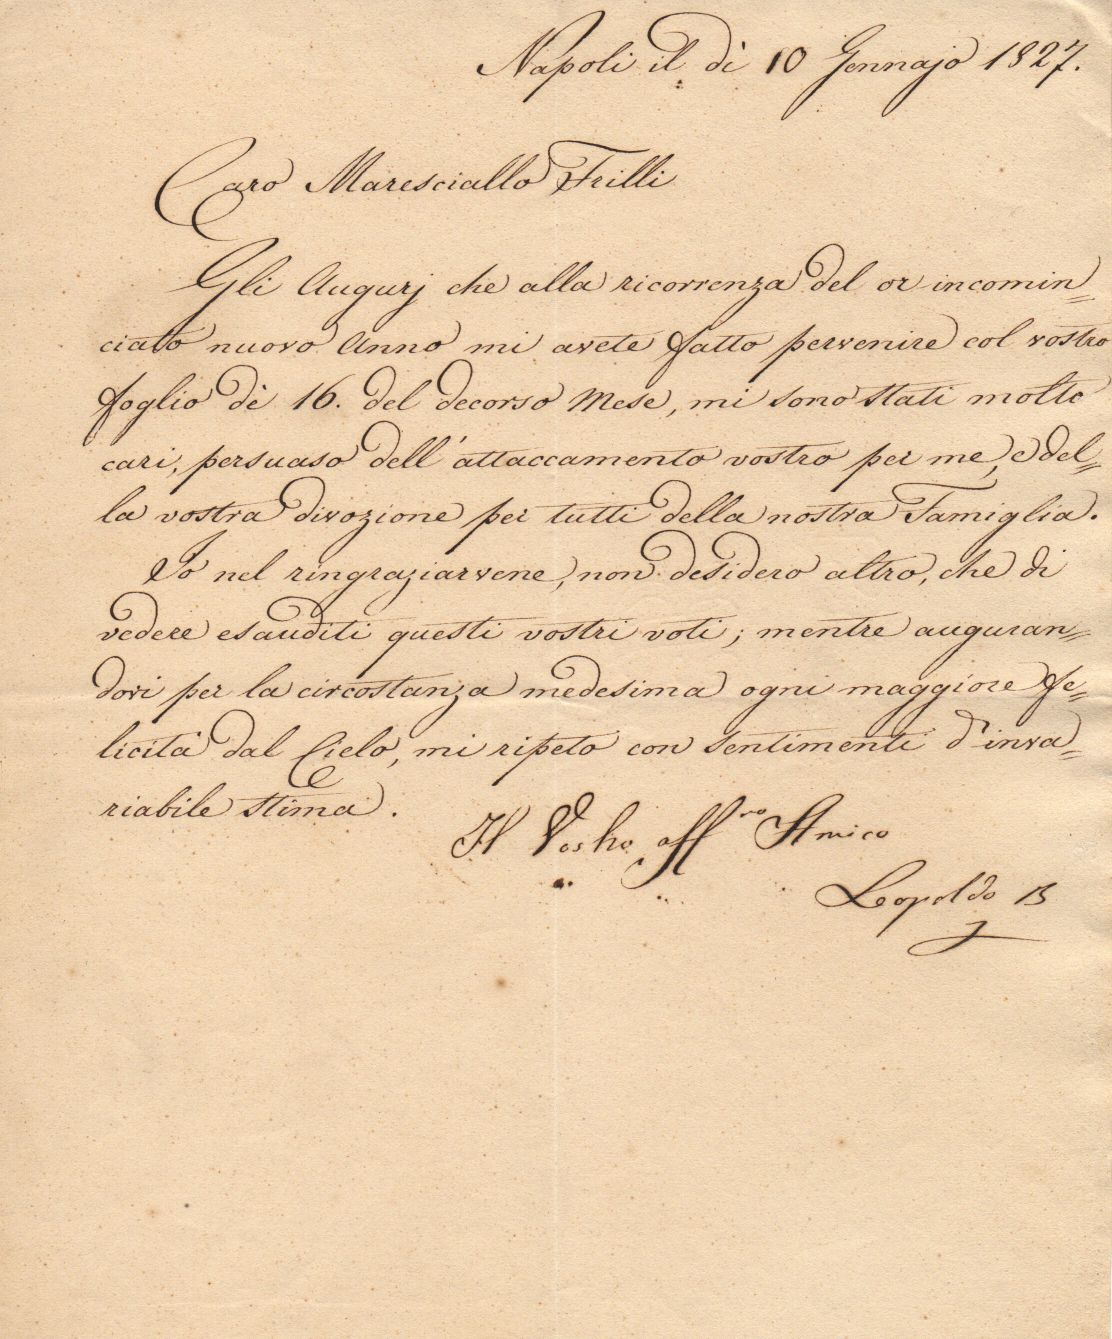 Napoli il dì 10 Gennajo 1827.
Caro Maresciallo Frilli
Gli Augurj che alla ricorrenza del or incomin=
ciato nuovo Anno mi avete fatto pervenire col vostro
foglio dè 16. del decorso Mese, mi sono stati molto
cari, persuaso dell'attaccamento vostro per me, e del=
la vostra divozione per tutti della nostra Famiglia.
Io nel ringraziarvene, non desidero altro, che di
vedere esauditi questi vostri voti; mentre auguran=
dovi per la circostanza medesima ogni maggiore fe=
licità dal Cielo, mi ripeto con sentimenti d'inva=
riabile stima.
Il Vostro aff.mo Amico
Leopoldo B